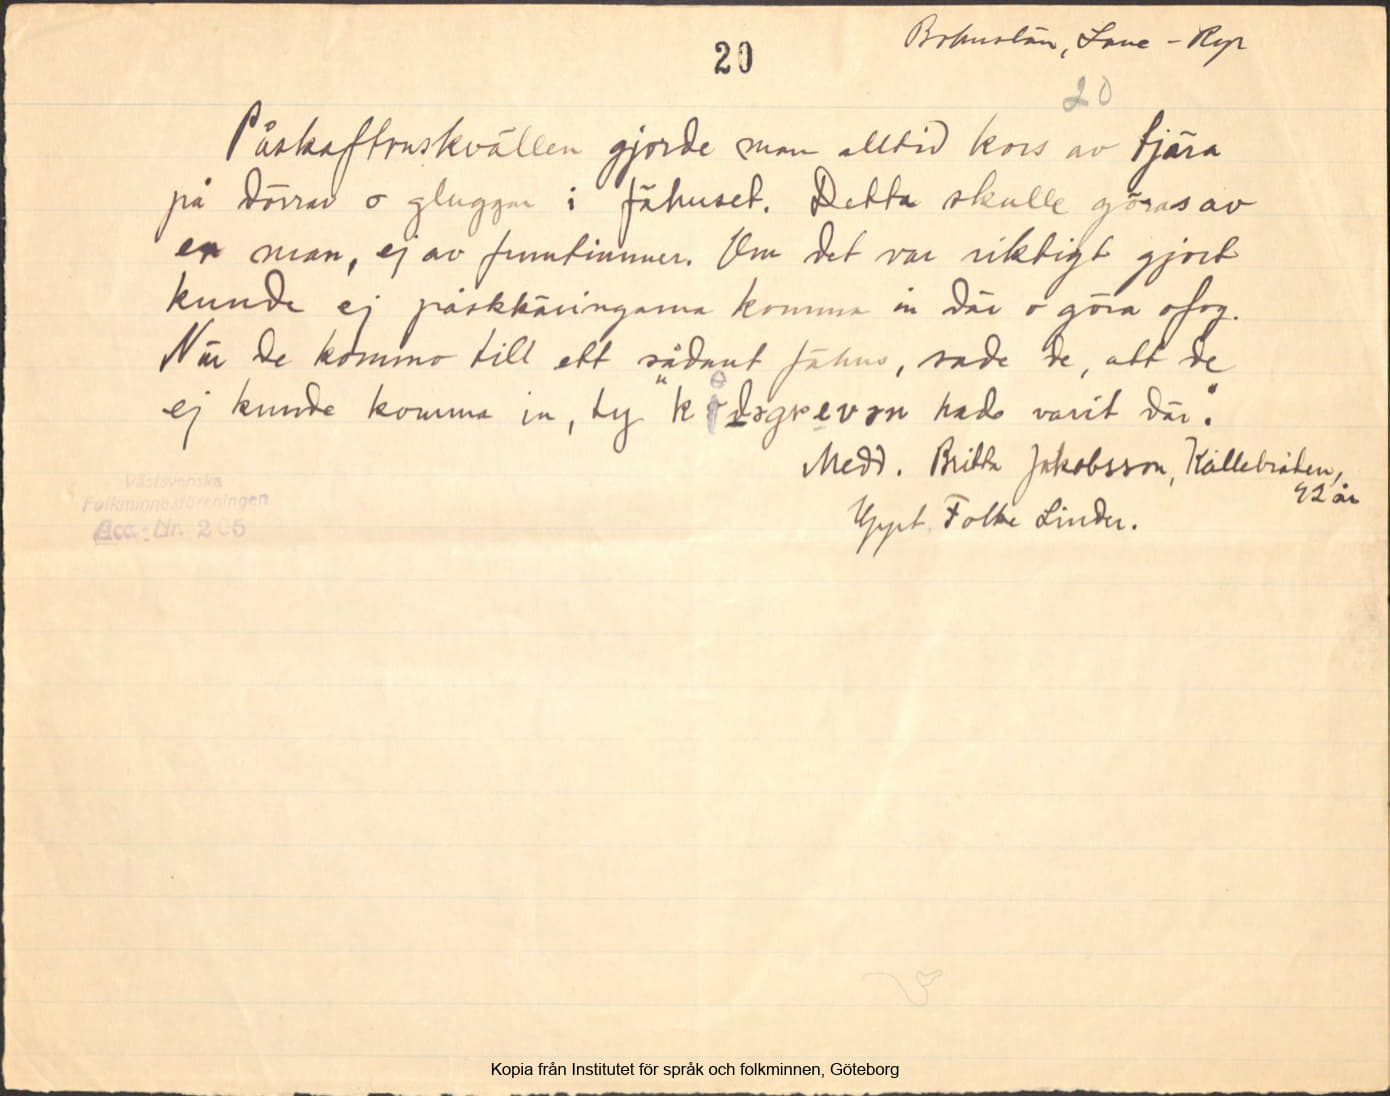 20
Bohuslän, Lane-Ryr
20
Påskaftonskvällen gjorde man alltid kors av tjära
på dörrar o gluggar i fähuset. Detta skulle göras av
en man, ej av fruntimmer. Om det var riktigt gjort
kunde ej påskkäringarna komma in där o göra ofog.
När de kommo till ett sådant fähus, sade de, att de
ej kunde komma in, ty "k hade varit där".
Medd. Britta Jakobsson, Källebråten,
92 år
Uppt. Folke Linder.
Västsvenska
Folkminnesföreningen
Acc.-Nr.
Kopia från Institutet för språk och folkminnen, Göteborg